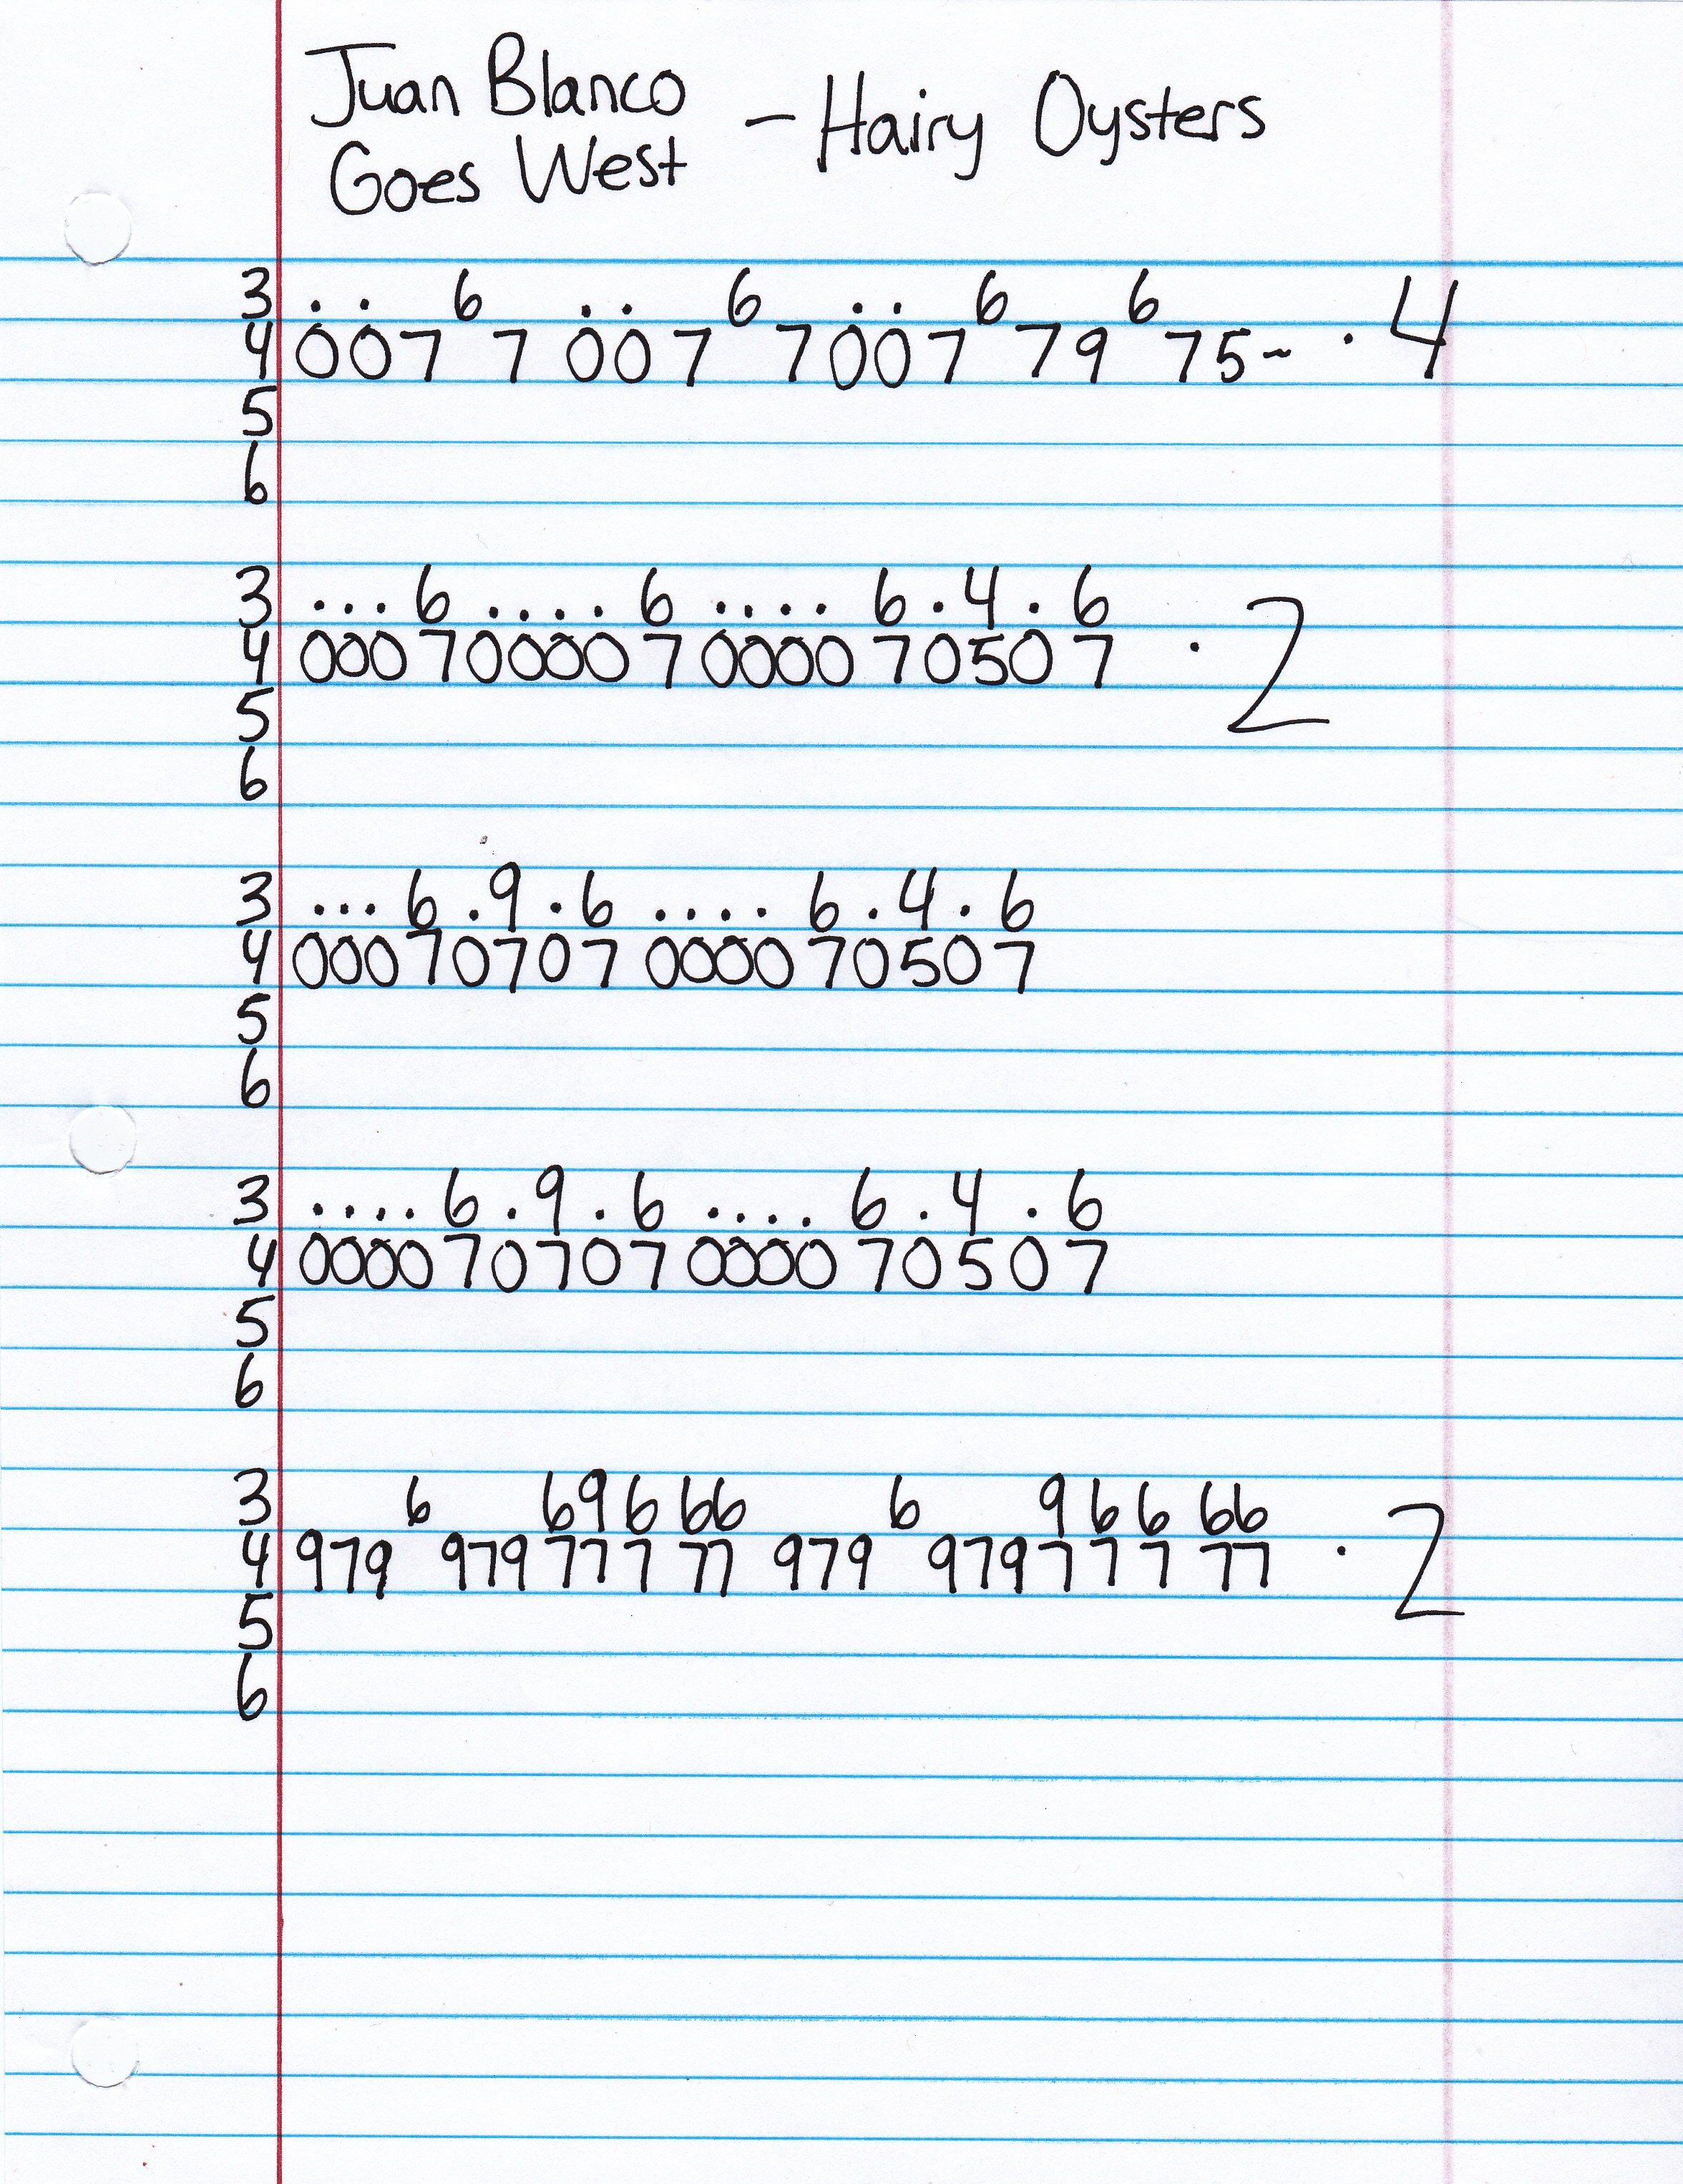 Juan Blanco - Hairy Oysters
Goes West
3 . . 6 . . 6 . . 6 6
4 0 0 7 7 0 0 7 7 0 0 7 7 9 7 5 ~ · 4
5
6
3 . . . 6 . . . . 6 . . . . 6 . 4 . 6
4 0 0 0 7 0 0 0 0 7 0 0 0 0 7 0 5 0 7 · 2
5
6
3 . . . 6 . 9 . 6 . . . . 6 . 4 . 6
4 0 0 0 7 0 7 0 7 0 0 0 0 7 0 5 0 7
5
6
3 . . . . 6 . 9 . 6 . . . . 6 . 4 . 6
4 0 0 0 0 7 0 7 0 7 0 0 0 0 7 0 5 0 7
5
6
3 6 6 9 6 6 6 6 9 6 6 6 6
4 9 7 9 9 7 9 7 7 7 7 7 9 7 9 9 7 9 7 7 7 7 7 · 2
5
6